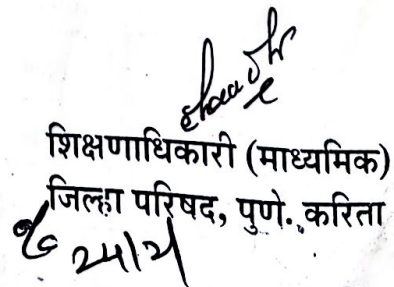 शिक्षणाधिकारी (माध्यमिक)
जिल्हा परिषद, पुणे. करिता